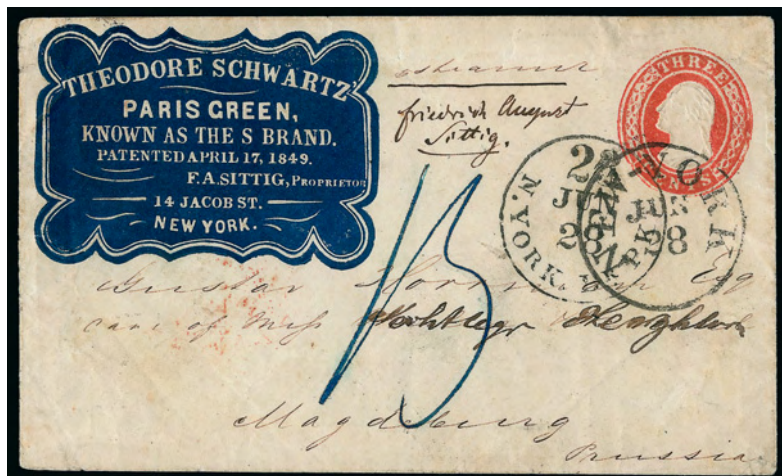 THEODORE SCHWARTZ'
PARIS GREEN,
KNOWN AS THE S BRAND.
PATENTED APRIL 17, 1849.
F.A. SITTIG, PROPRIETOR
14 JACOB ST.
NEW YORK.
friedrich August
Sittig.
THREE
CENTS
NEW YORK
JUN
28
N. YORK
JUN
28
PKT
Gustav
care of Mess
13
Magdeburg
Prussia